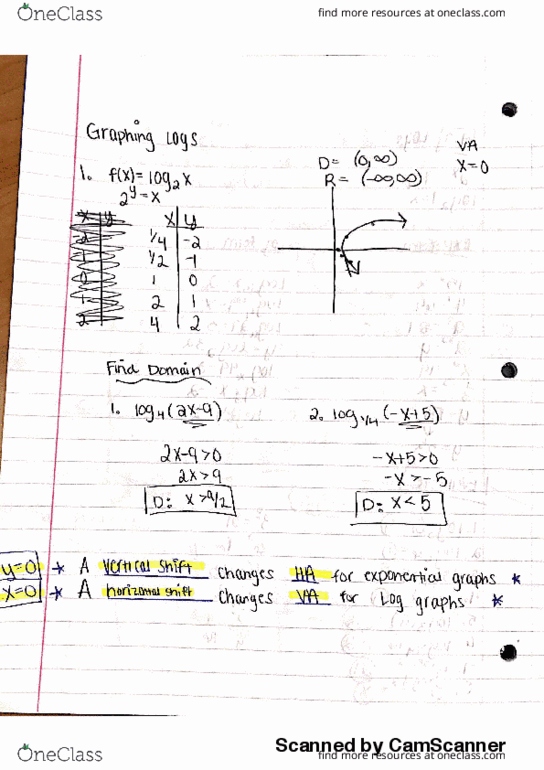 OneClass find more resources at oneclass.com
Graphing Logs
VA
D= (0,∞) X=0
1. f(x)=log₂x R= (-∞,∞)
2^y=x
x y
-2
-1
0
1
2
x y
1/4 -2
1/2 -1
1 0
2 1
4 2
Find Domain
1. log₄(2x-9) 2. log₁/₄(-x+5)
2x-9>0 -x+5>0
2x>9 -x>-5
D: x>9/2 D: x<5
y=0 * A vertical shift changes HA for exponential graphs *
x=0 * A horizontal shift changes VA for Log graphs *
Scanned by CamScanner
OneClass find more resources at oneclass.com